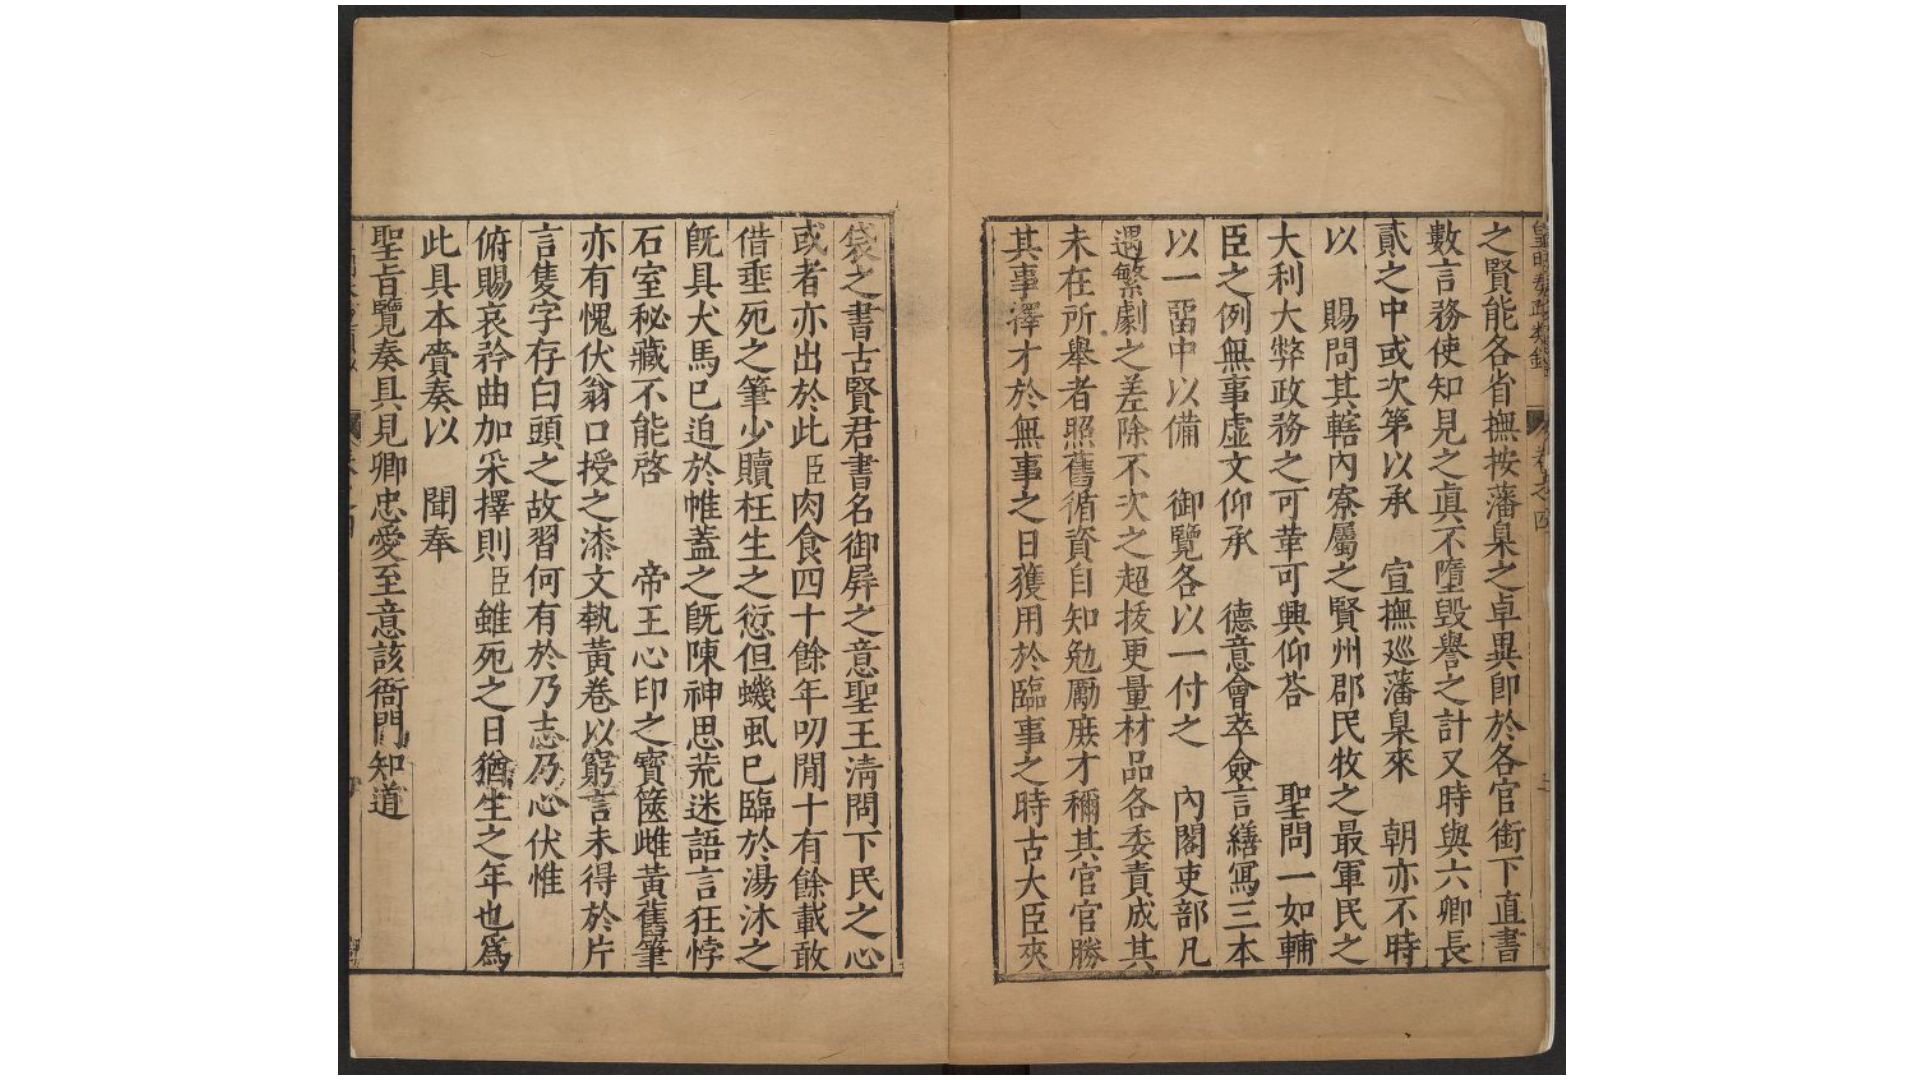 皇明奏疏類鈔 卷之四
之賢能各省撫按藩臬之卓異即於各官銜下直書
數言務使知見之真不墮毀譽之計又時與六卿長
貳之中或次第以承 宣撫巡藩臬來 朝亦不時
以 賜問其轄內寮屬之賢州郡民牧之最軍民之
大利大弊政務之可革可興仰荅 聖問一如輔
臣之例無事虛文仰承 德意會萃僉言繕寫三本
以一畱中以備 御覽各以一付之 內閣吏部凡
遇繁劇之差除不次之超拔更量材品各委責成其
未在所舉者照舊循資自知勉勵庶才稱其官官勝
其事擇才於無事之日獲用於臨事之時古大臣夾
袋之書古賢君書名御屏之意聖王清問下民之心
或者亦出於此臣肉食四十餘年叨閒十有餘載敢
借垂死之筆少贖枉生之愆但蟣虱已臨於湯沐之
旣具犬馬已迫於帷蓋之旣陳神思荒迷語言狂悖
石室秘藏不能啓 帝王心印之寶篋雌黃舊筆
亦有愧伏翁口授之漆文執黃卷以窮言未得於片
言隻字存白頭之故習何有於乃志乃心伏惟
俯賜哀矜曲加采擇則臣雖死之日猶生之年也爲
此具本賫奏以 聞奉
聖旨覽奏具見卿忠愛至意該衙門知道